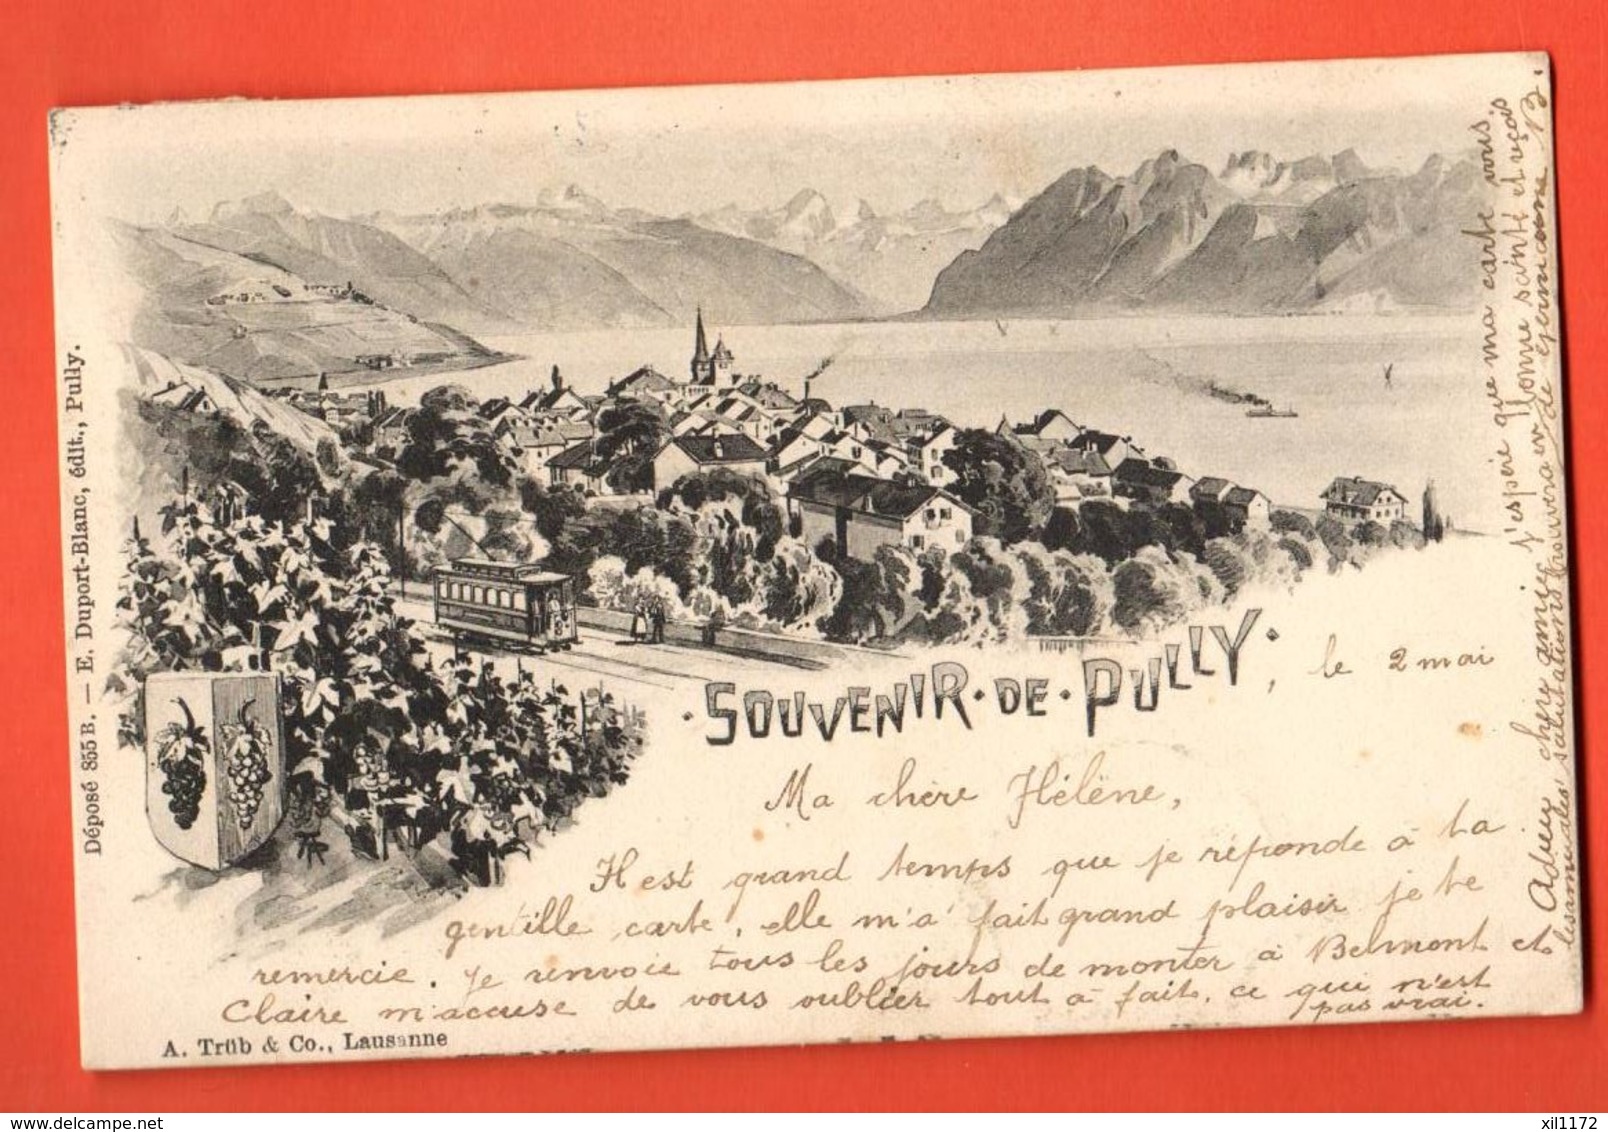 Déposé 855 B. — E. Duport-Blanc, édit., Pully.
·SOUVENIR·DE·PULLY·, le 2 mai
Ma chère Hélène,
Il est grand temps que je réponde à ta
gentille carte, elle m'a fait grand plaisir je te
remercie. Je renvoie tous les jours de monter à Belmont et
Claire m'accuse de vous oublier tout à fait, ce qui n'est
pas vrai.
A. Trüb & Co., Lausanne
Adieu chère amie, j'espère que ma carte vous
en bonne santé et reçois
les amicales salutations de Germaine B.
xil1172